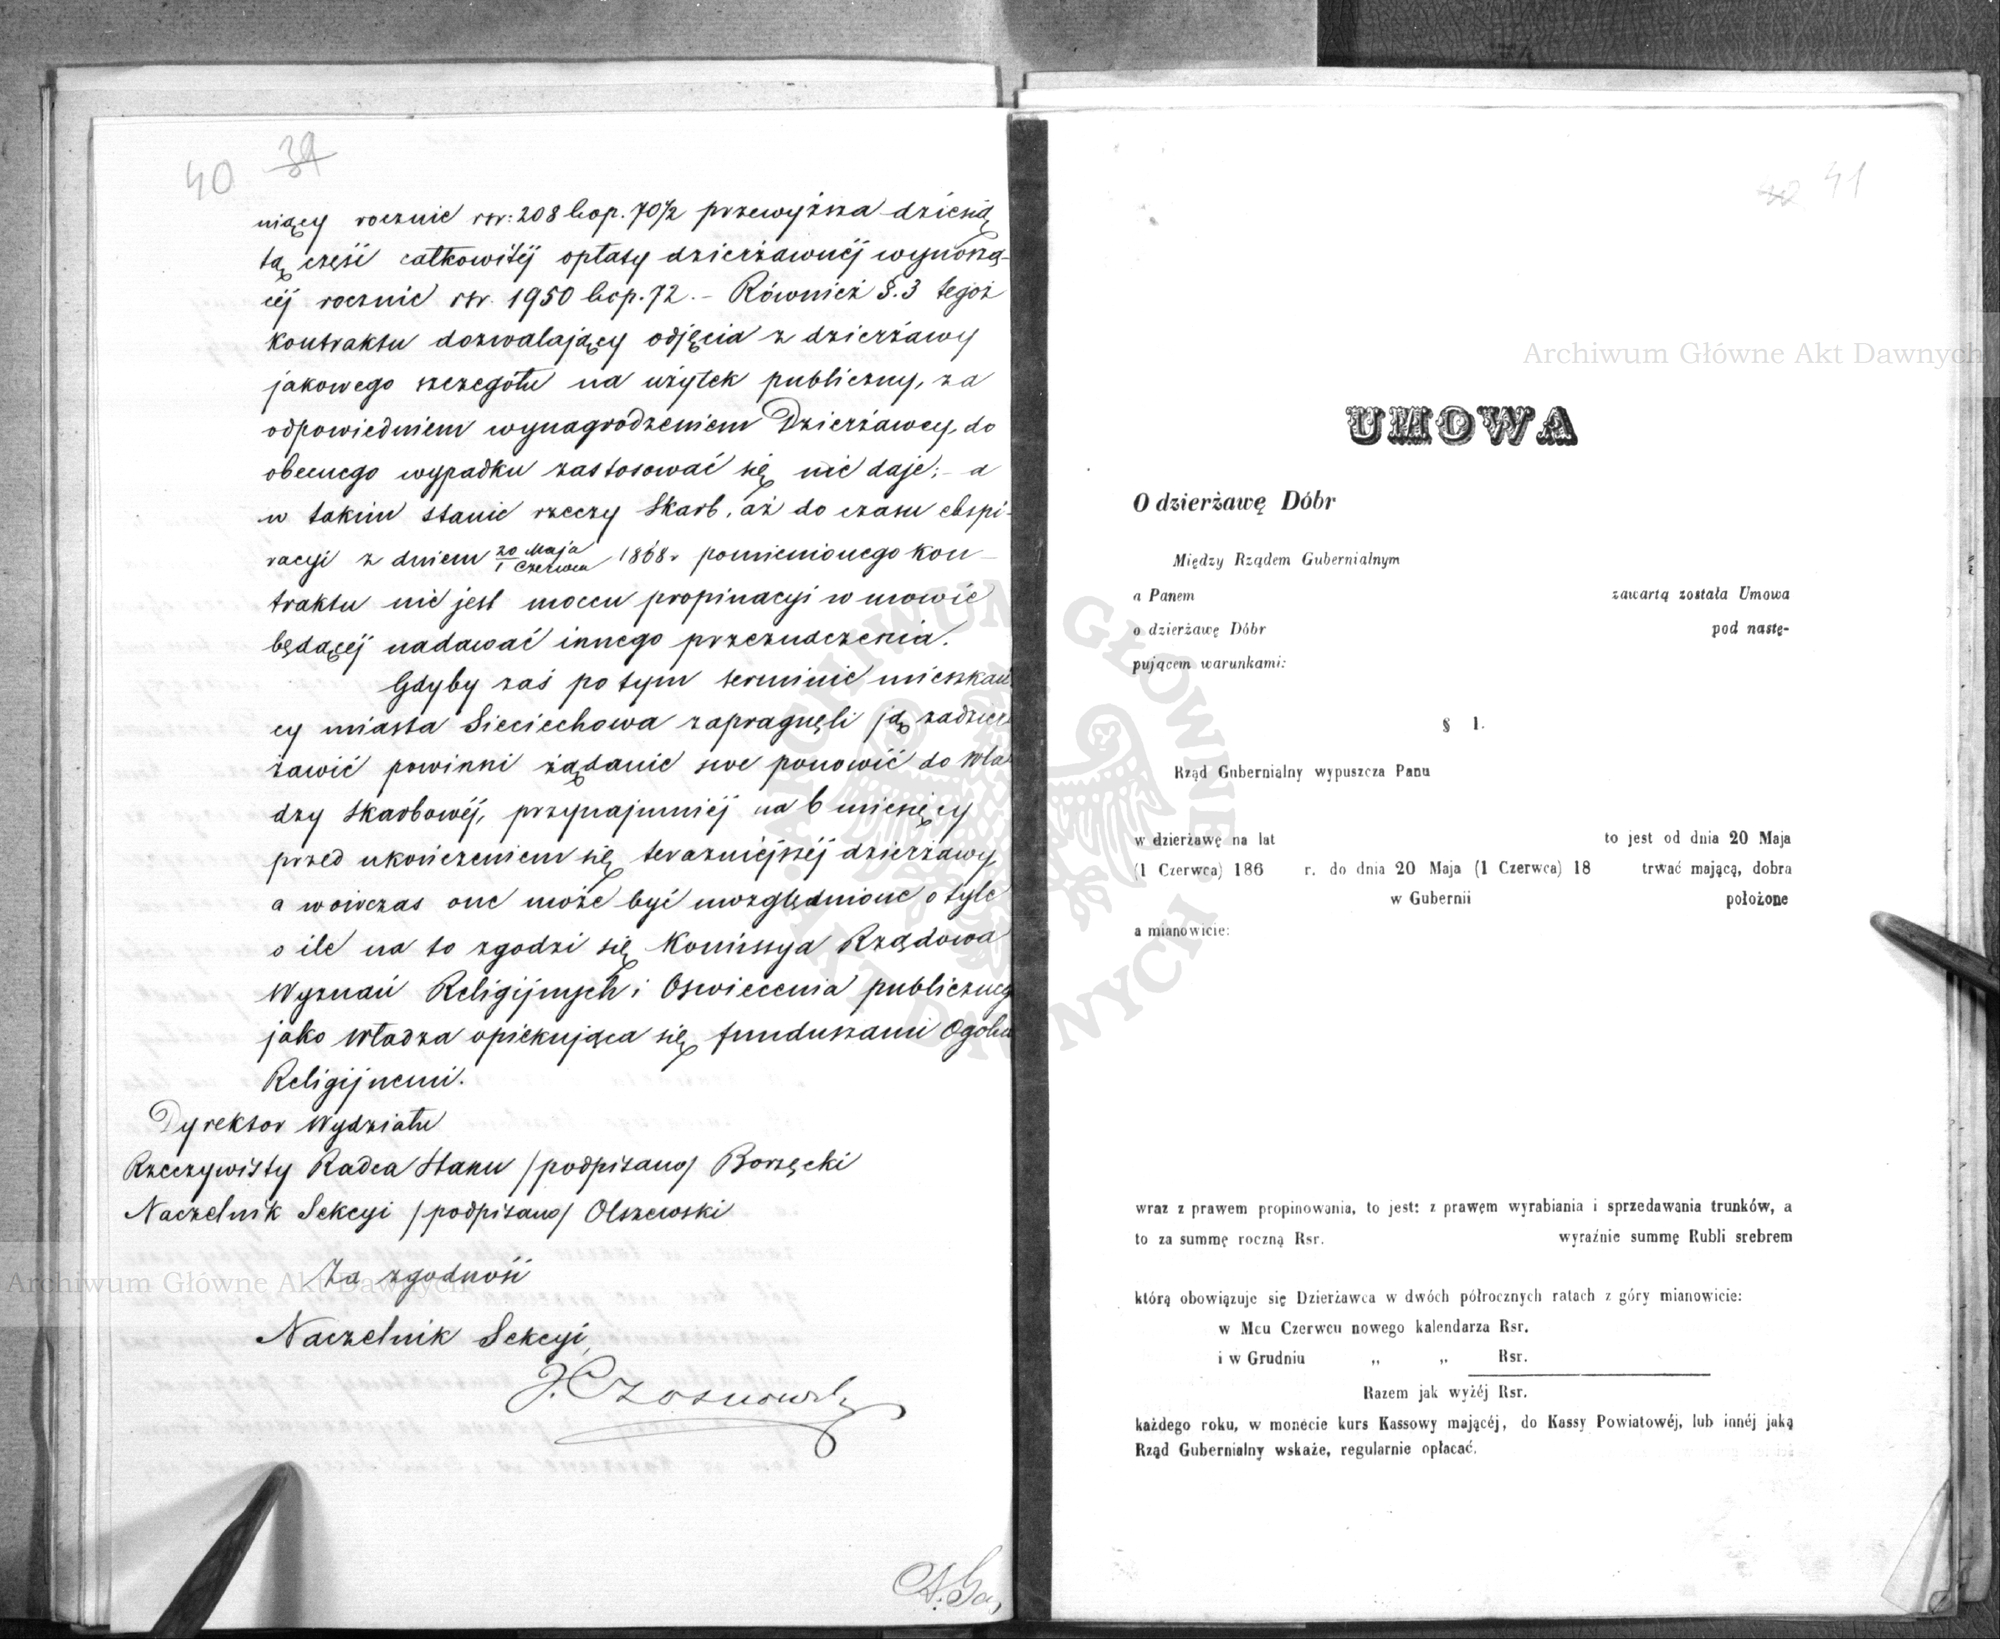 40 39
niący rocznie rsr: 208 kop. 70½ przewyższa dziesią
tą część całkowitéj opłaty dzierżawnéj wynoszą-
céj rocznie rsr. 1950 kop. 72. - Również §. 3 tegoż
kontraktu dozwalający odjęcia z dzierżawy
jakowego szczegółu na użytek publiczny, za
odpowiedniem wynagrodzeniem Dzierżawcy, do
obecnego wypadku zastosować się nie daje; - a
w takim stanie rzeczy Skarb, aż do czasu ekspi-
racyi z dniem 20 Maja / 1 Czerwca 1868 r pomienionego kon-
traktu nie jest mocen propinacyi w mowie
będącéj nadawać innego przeznaczenia.
Gdyby zaś po tym terminie mieszkań
cy miasta Sieciechowa zapragnęli ją zadzier
żawić powinni żądanie swe ponowić do Wła
dzy Skarbowéj, przynajmniéj na 6 miesięcy
przed ukończeniem się teraźniejszéj dzierżawy,
a wówczas one może być uwzględnione o tyle
o ile na to zgodzi się Komissya Rządowa
Wyznań Religijnych i Oświecenia publiczneg
jako Władza opiekująca się funduszami Ogólno
Religijnemi.
Dyrektor Wydziału
Rzeczywisty Radca Stanu /podpisano/ Borzęcki
Naczelnik Sekcyi /podpisano/ Olszewski
Za zgodność
Naczelnik Sekcyi,
41
UMOWA
O dzierżawę Dóbr
Między Rządem Gubernialnym
a Panem zawartą została Umowa
o dzierżawę Dóbr pod nastę-
pującem warunkami:
§ 1.
Rząd Gubernialny wypuszcza Panu
w dzierżawę na lat to jest od dnia 20 Maja
(1 Czerwca) 186 r. do dnia 20 Maja (1 Czerwca) 18 trwać mającą, dobra
w Gubernii położone
a mianowicie:
wraz z prawem propinowania, to jest: z prawem wyrabiania i sprzedawania trunków, a
to za summę roczną Rsr. wyraźnie summę Rubli srebrem
którą obowiązuje się Dzierżawca w dwóch półrocznych ratach z góry mianowicie:
w Mcu Czerwcu nowego kalendarza Rsr.
i w Grudniu „ „ Rsr.
Razem jak wyżéj Rsr.
każdego roku, w monecie kurs Kassowy mającéj, do Kassy Powiatowéj, lub innéj jaką
Rząd Gubernialny wskaże, regularnie opłacać.
Archiwum Główne Akt Dawnych
Archiwum Główne Akt Dawnych
ARCHIWUM GŁÓWNE AKT DAWNYCH